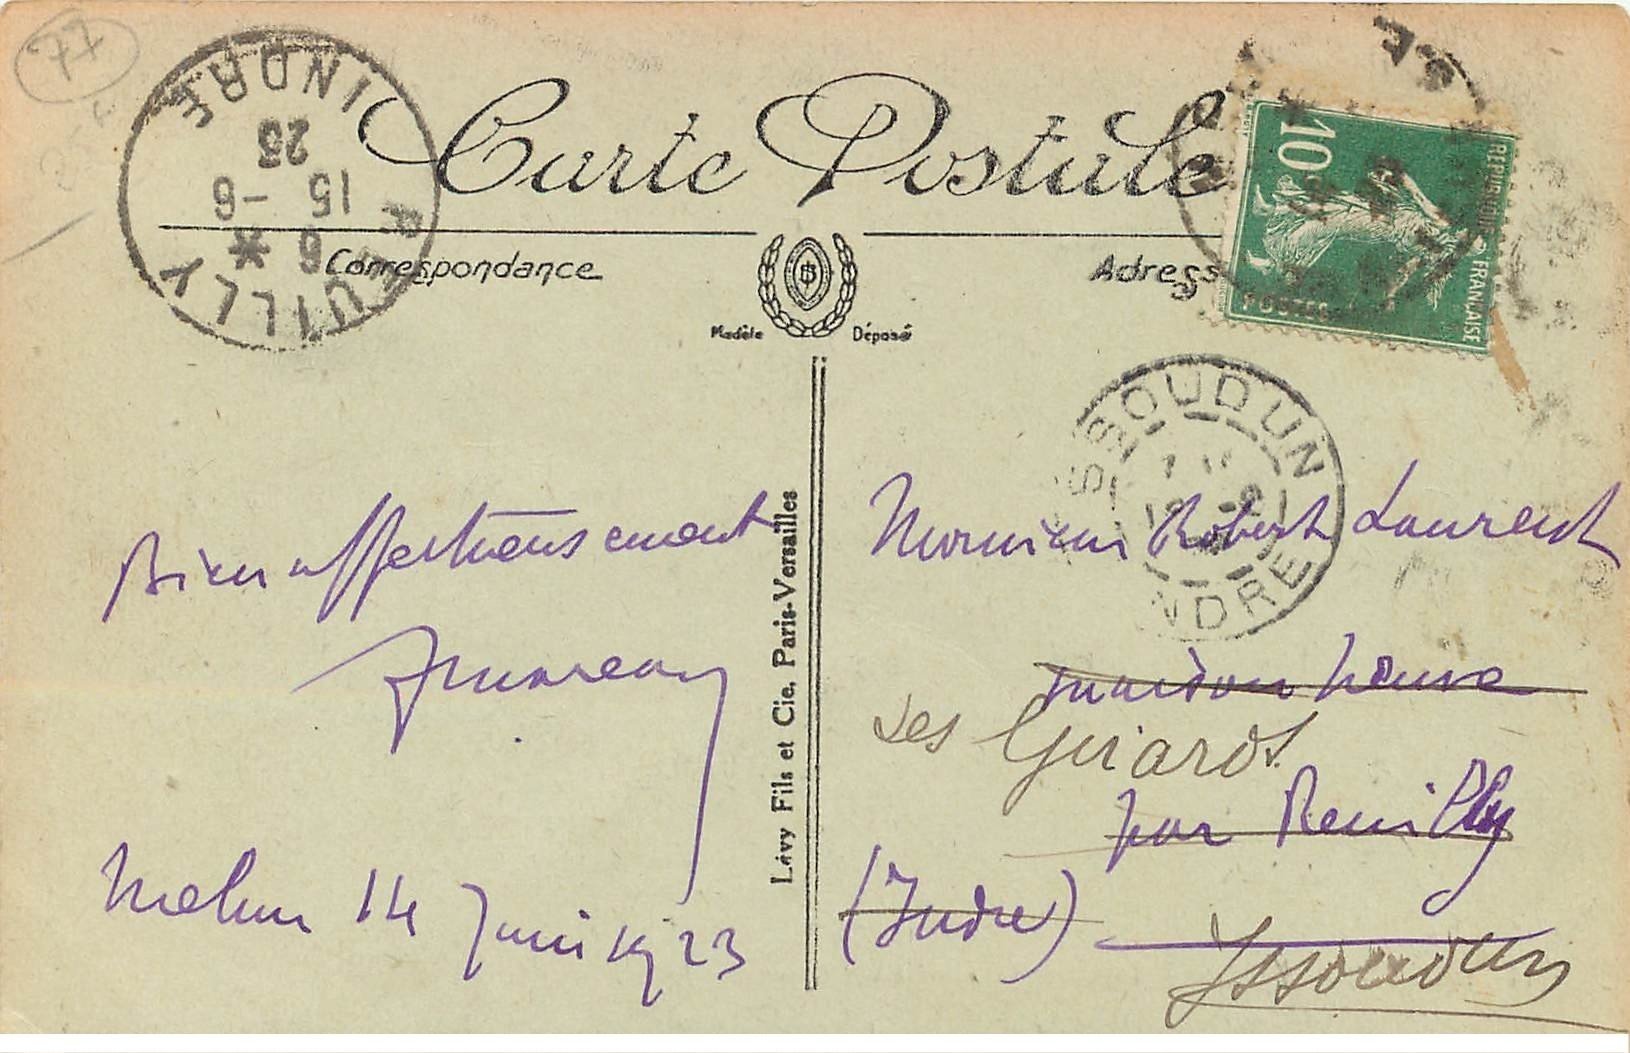 77
Carte Postale
INDRE
23
15 -6
6 *
REUILLY
Correspondance
Modèle Déposé
Adress
10
REPUBLIQUE FRANÇAISE
POSTES
ISSOUDUN
INDRE
Lévy Fils et Cie, Paris-Versailles
Bien affectueusement
Melun 14 Juin 1923
Monsieur Robert Laurent
maison neuve
Les Girards
par Reuilly
(Indre)
Issoudun